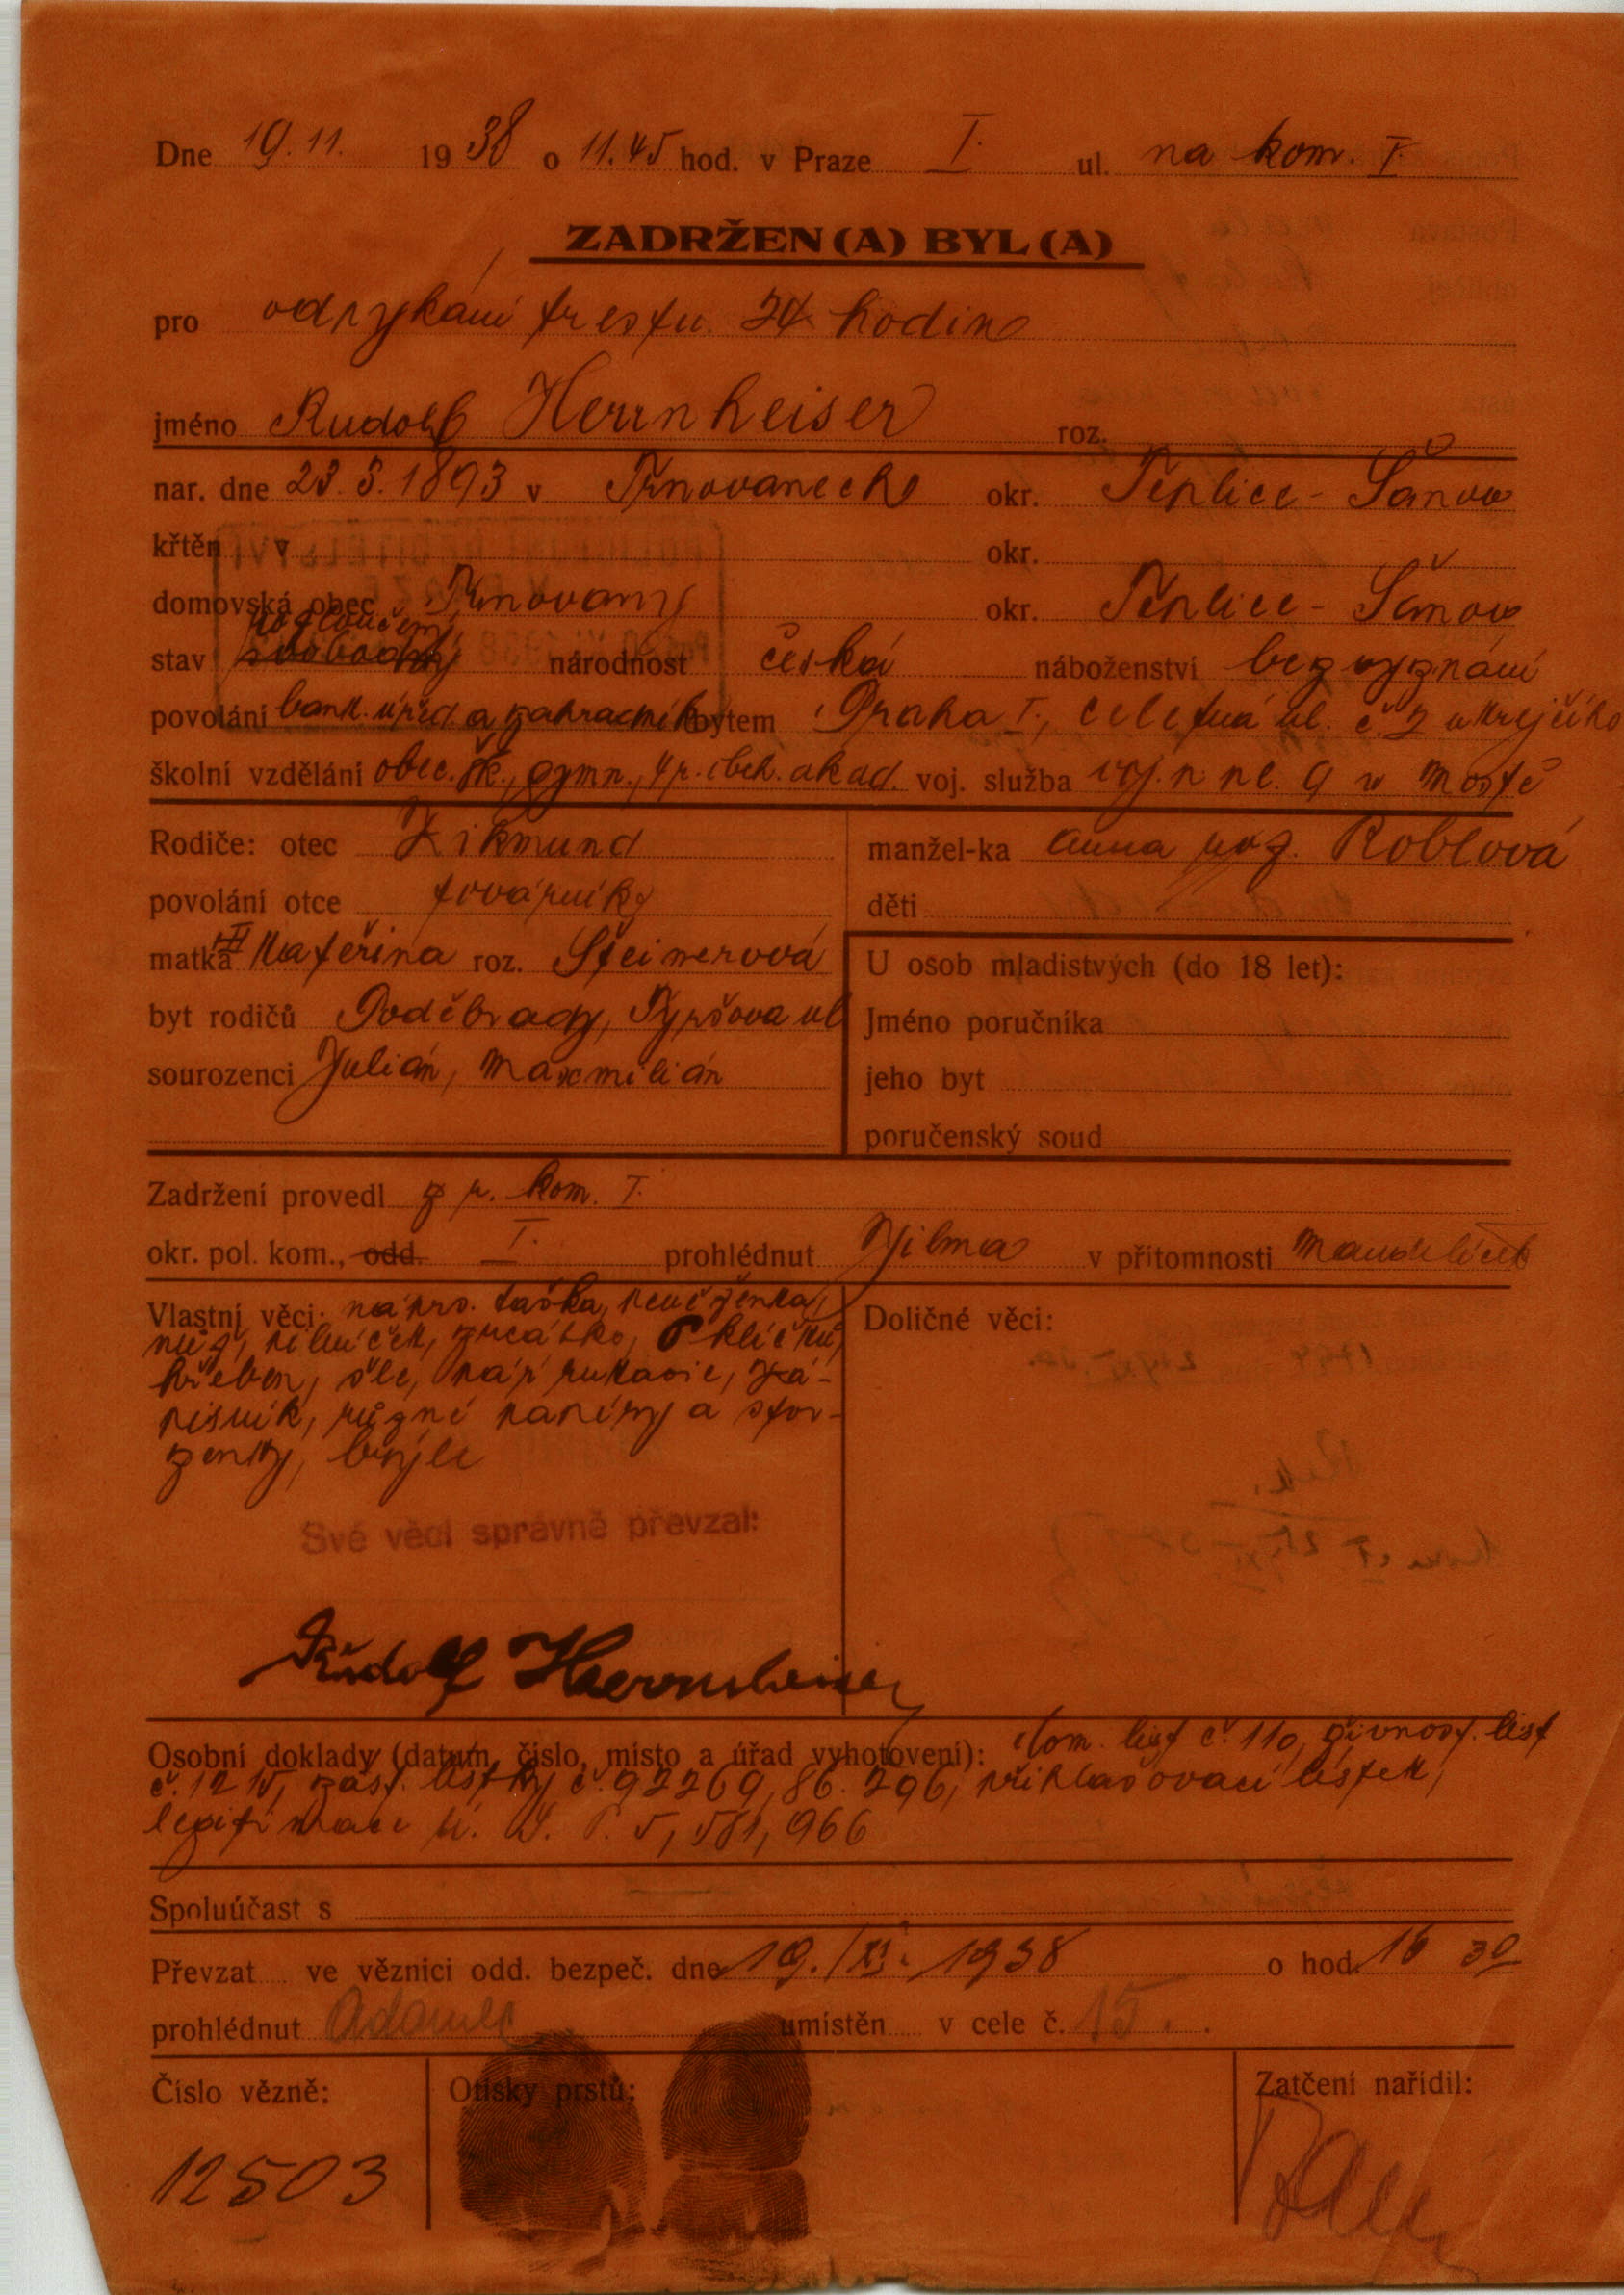 Dne 19. 11. 1938 o 11.45 hod. v Praze I. ul. na kom. I.
ZADRŽEN(A) BYL(A)
pro odpykání trestu 24 hodin
jméno Rudolf Herrnheiser roz.
nar. dne 23. 3. 1893 v Trnovanech okr. Teplice-Šanov
křtěn v okr.
domovská obec Trnovany okr. Teplice-Šanov
rozloučený
stav svobodný národnost česká náboženství bez vyznání
povolání bank. úřed. a zahradník bytem Praha I., Celetná ul. č. 2 u Krejčího
školní vzdělání obec. šk., gymn., 4 r. obch. akad. voj. služba voj. p. pl. 9 v Mostě
Rodiče: otec Zikmund manžel-ka Anna roz. Roblová
povolání otce továrník děti
matka Kateřina roz. Steinerová U osob mladistvých (do 18 let):
byt rodičů Poděbrady, Tyršova ul. Jméno poručníka
sourozenci Julián, Maxmilián jeho byt
poručenský soud
Zadržení provedl z r. kom. I.
okr. pol. kom., odd. I. prohlédnut Jilma v přítomnosti
Vlastní věci: nápr. taška, peněženka, Doličné věci:
nůž, pilníček, zrcátko, klíčků,
hřeben, šle, pár rukavic, zá-
pisník, různé papíry a stvr-
zenky, brýle
Své věci správně převzal:
Rudolf Herrnheiser
Osobní doklady (datum, číslo, místo a úřad vyhotovení): dom. list č. 110, živnost. list
č. 1215, zast. lístky č. 92269, 86.296, přihlašovací lístek,
legitimace 5,581,966
Spoluúčast s
Převzat ve věznici odd. bezpeč. dne 19. XI. 1938 o hod. 16 30
prohlédnut Adamec umístěn v cele č. 15.
Číslo vězně: Otisky prstů: Zatčení nařídil:
12503